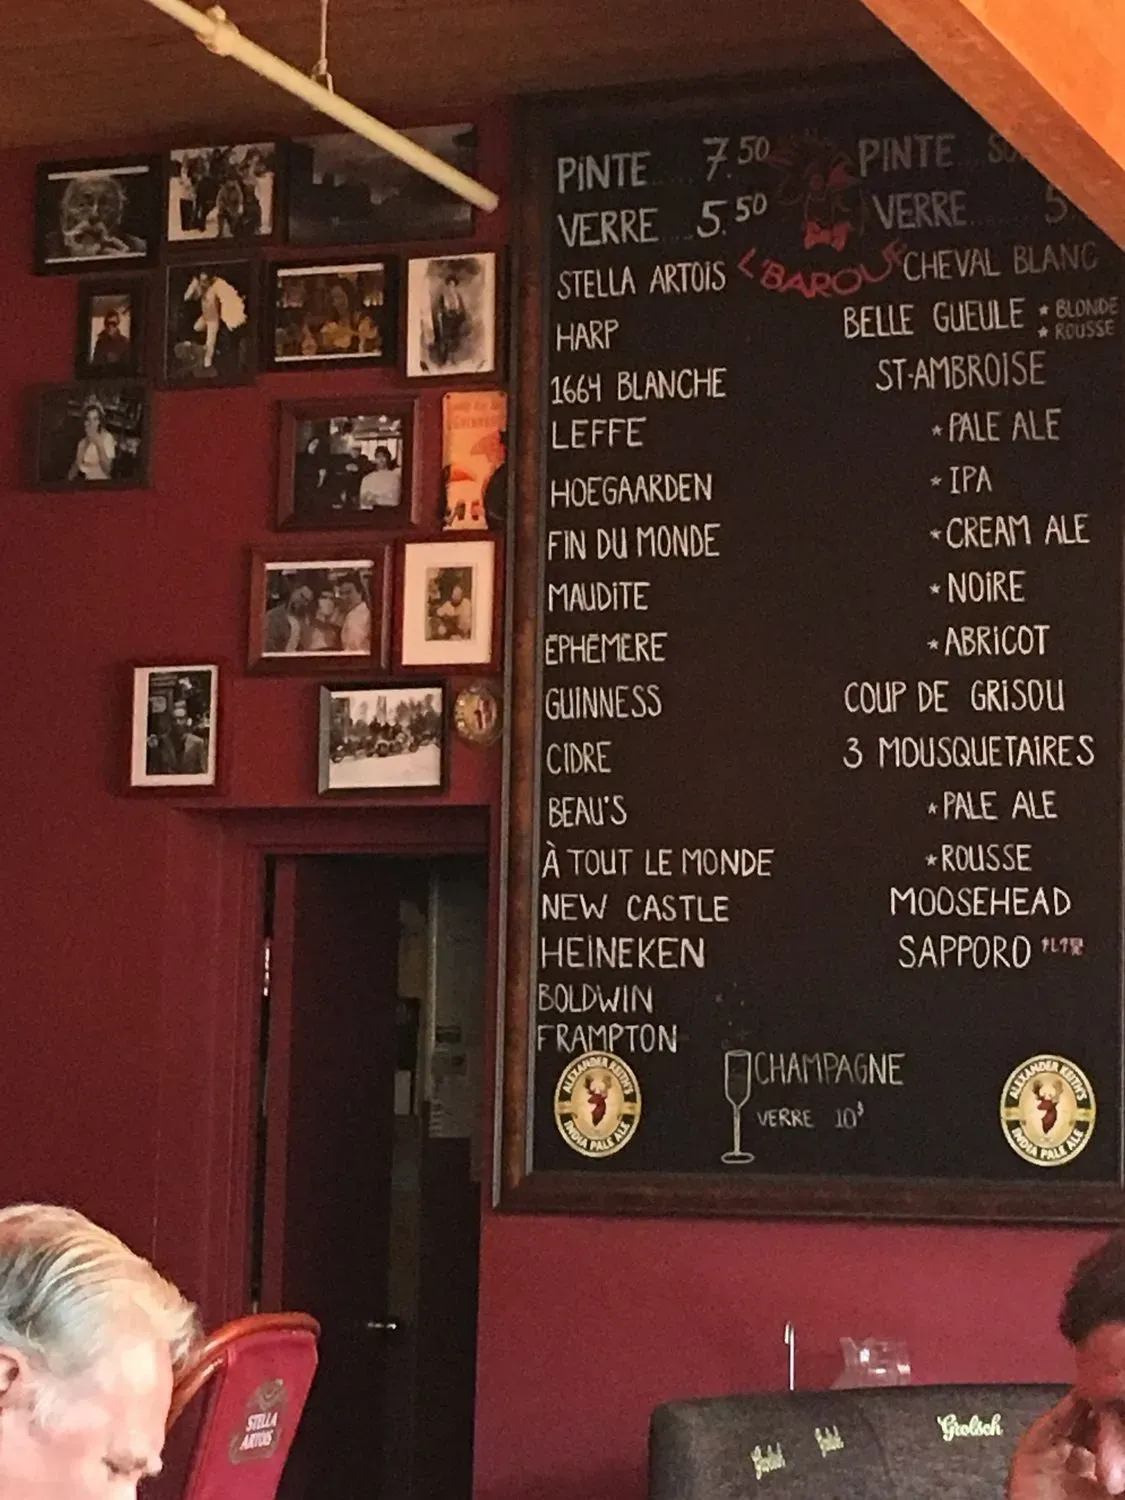 PINTE .... 7.50
VERRE ... 5.50
L'BAROUF
STELLA ARTOIS
HARP
1664 BLANCHE
LEFFE
HOEGAARDEN
FIN DU MONDE
MAUDITE
ÉPHÉMÈRE
GUINNESS
CIDRE
BEAU'S
À TOUT LE MONDE
NEW CASTLE
HEINEKEN
BOLDWIN
FRAMPTON
PINTE ...
VERRE ..... 5.
CHEVAL BLANC
BELLE GUEULE * BLONDE
* ROUSSE
ST-AMBROISE
* PALE ALE
* IPA
* CREAM ALE
* NOIRE
* ABRICOT
COUP DE GRISOU
3 MOUSQUETAIRES
* PALE ALE
* ROUSSE
MOOSEHEAD
SAPPORO
CHAMPAGNE
VERRE 10$
ALEXANDER KEITH'S
INDIA PALE ALE
ALEXANDER KEITH'S
INDIA PALE ALE
STELLA
ARTOIS
Grolsch
Grolsch
Grolsch